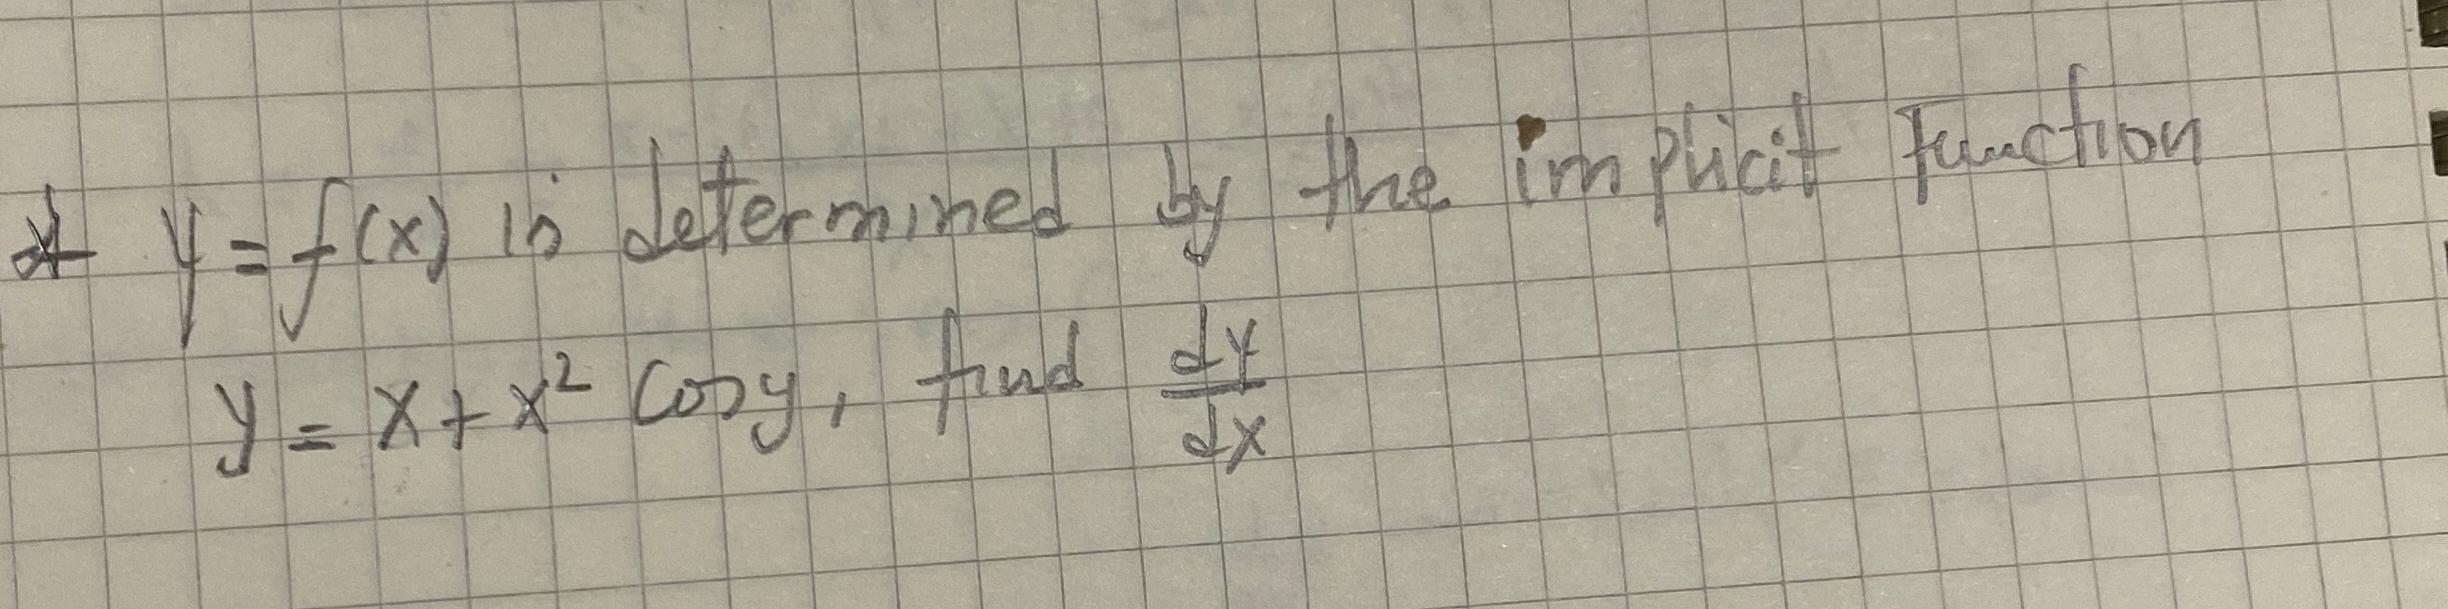 If y = f(x) is determined by the implicit function
y = x + x² cosy, find dy/dx